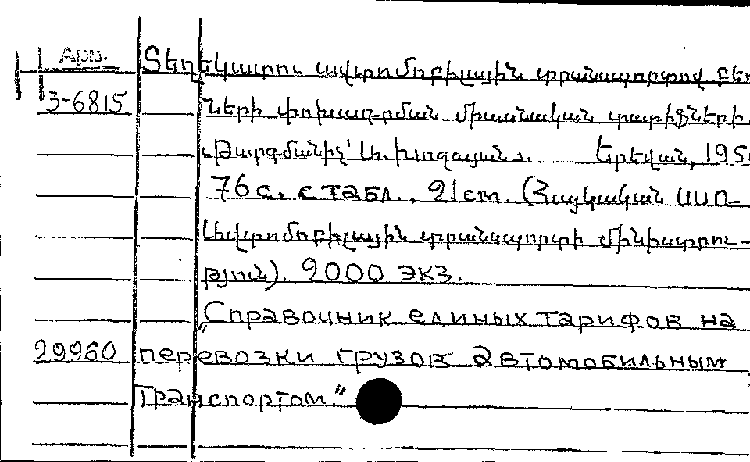 Арм. Տեղեկատու ավտոմոբիլային տրանսպորտով բեռ
3-6815 ների փոխադրման միասնական տարիֆների.
Թարգմանիչ՝ Երևան, 195
76 с. с табл., 21 cm. (Հայկական ՍՍՌ-
Ավտոմոբիլային տրանսպորտի մինիստրու-
թյուն). 2000 экз.
„Справочник единых тарифов на
29960 перевозки грузов автомобильным
транспортом."